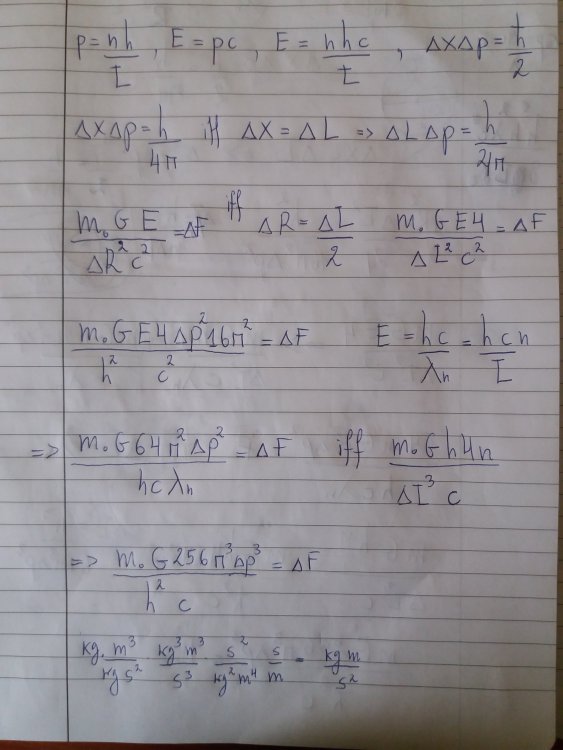 p = nh/L , E = pc , E = nhc/L , ΔxΔp = ħ/2
ΔxΔp = h/4π iff Δx = ΔL => ΔLΔp = h/4π
m₀GE/ΔR²c² = ΔF iff ΔR = ΔL/2 m₀GE4/ΔL²c² = ΔF
m₀GE4Δp²16π²/h²c² = ΔF E = hc/λₙ = hcn/L
=> m₀G64π²Δp²/hcλₙ = ΔF iff m₀Gh4n/ΔL³c
=> m₀G256π³Δp³/h²c = ΔF
kg · m³/kg s² kg³m³/s³ s²/kg²m⁴ s/m = kg m/s²